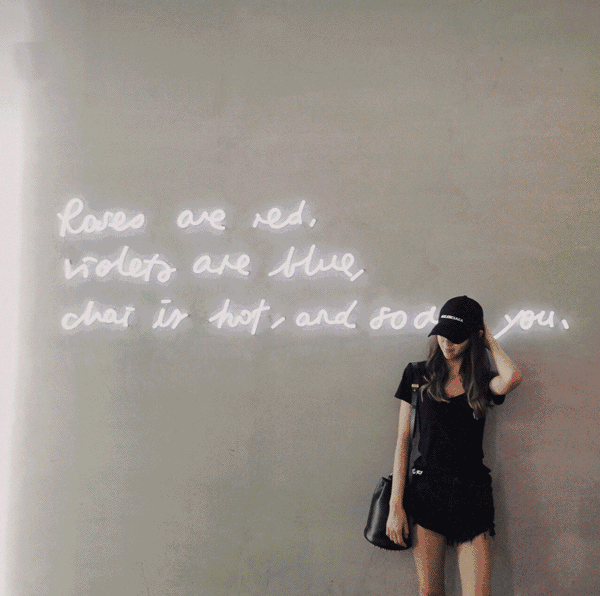 Roses are red,
violets are blue,
chai is hot, and so you.
BALENCIAGA